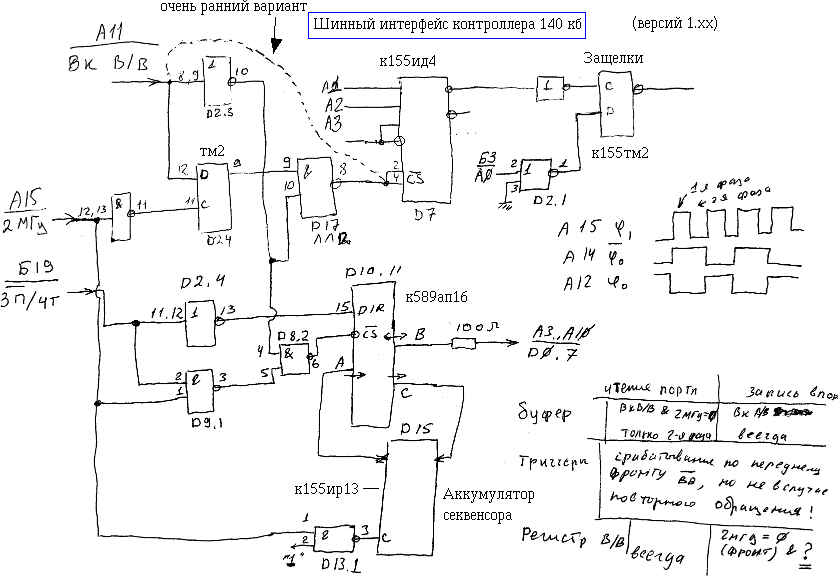 очень ранний вариант
Шинный интерфейс контроллера 140 кб
(версий 1.xx)
А11
Вк В/В
8,9
1
10
D2.3
к155ид4
A0
A2
A3
2
4
CS
D7
Защелки
1
C
D
к155тм2
Б3
A0
2
3
1
1
D2.1
тм2
12
D
C
11
9
D24
9
10
&
8
D17
А15
2 МГц
12,13
&
11
Б19
Зп/чт
D2.4
11,12
1
13
2
1
3
D9.1
D8.2
4
5
&
6
D10,11
к589ап16
15
DIR
CS
A
B
C
100 л
А3..А10
D0.7
D15
к155ир13
Аккумулятор
секвенсора
1
2
"1"
3
C
D13.1
1я фаза
2я фаза
А 15 φ1
А 14 φ0
А 12 φ0
чтения порта
запись в порт
Буфер
ВкВ/В & 2мгц=0
только 2-я фаза
всегда
Триггеры
срабатывание по переднему
фронту
, но не в случае
повторного обращения!
Регистр В/В
всегда
2мгц = 0
(фронт) & ?